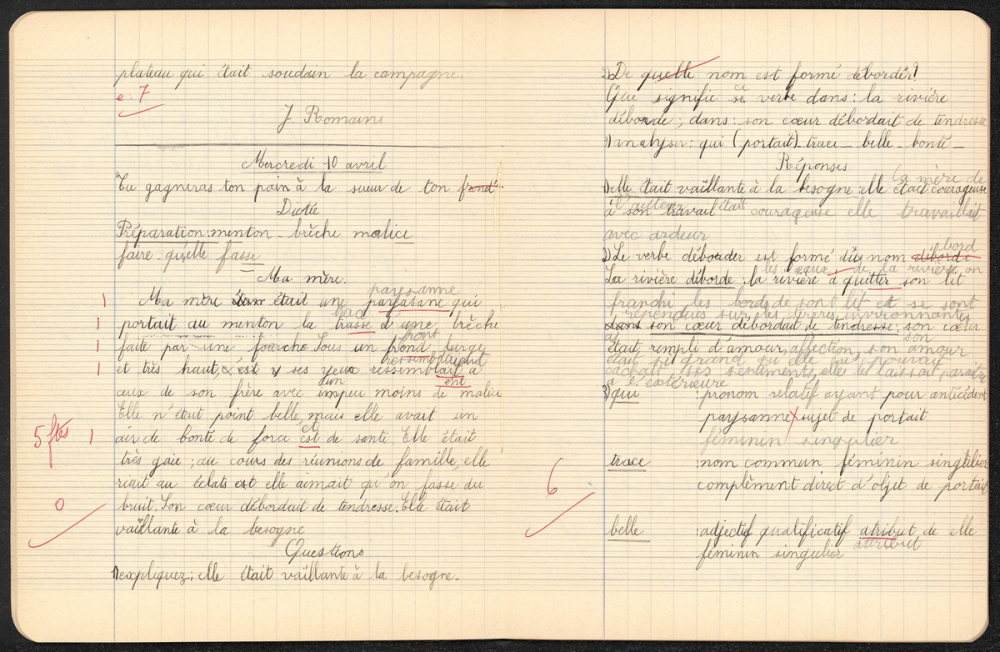 plateau qui était soudain la campagne.
e. 7
J Romains
Mercredi 10 avril
Tu gagneras ton pain à la sueur de ton frond.
Dictée
Préparation: menton - brêche malice
faire - qu'elle fasse
Ma mère.
paysanne
1 Ma mère était une paysane qui
1 portait au menton la trasse d'une brêche
1 faite par une fourche. Sous un frond large
front
ressemblaient
1 et très haut, ses yeux ressemblait à
d'un est
ceux de son frère avec impeu moins de malice
Elle n'était point belle, mais elle avait un
et
5 ftes 1 air de bonté de force est de santé Elle était
très gaie; au cours des réunions de famille, elle
riait au éclats est elle aimait qu'on fasse du
0 bruit. Son cœur débordait de tendresse. Elle était
vaillante à la besogne
Questions
1) expliquez: elle était vaillante à la besogne.
2) De quelle nom est formé déborder?
Que signifie ce verbe dans: la rivière
déborde; dans: son cœur débordait de tendresse
3) analyser: qui (portait) - trace - belle - bonté -
Réponses
la mère de
1) elle était vaillante à la besogne: elle était courageuse
l'auteur était
à son travail courageuse elle travaillait
avec ardeur
bord
2) Le verbe déborder est formé du nom débord.
les eaux de la rivière on
La rivière déborde: la rivière à quitter son lit
franchi les bords de son lit et se sont
répendues sur les terres environnantes
dans son cœur débordait de tendresse: son cœur
son
était rempli d'amour, affection, son amour
était si grand qu'elle ne pouvait
cacher ses sentiments, elle le laissait paraître
à l'extérieure
3) qui : pronom relatif ayant pour antécédent
paysanne, sujet de portait
féminin singulier
6 trace : nom commun féminin singulier
complèment direct d'objet de portait
belle : adjectif qualificatif atribut de elle
féminin singulier attribut